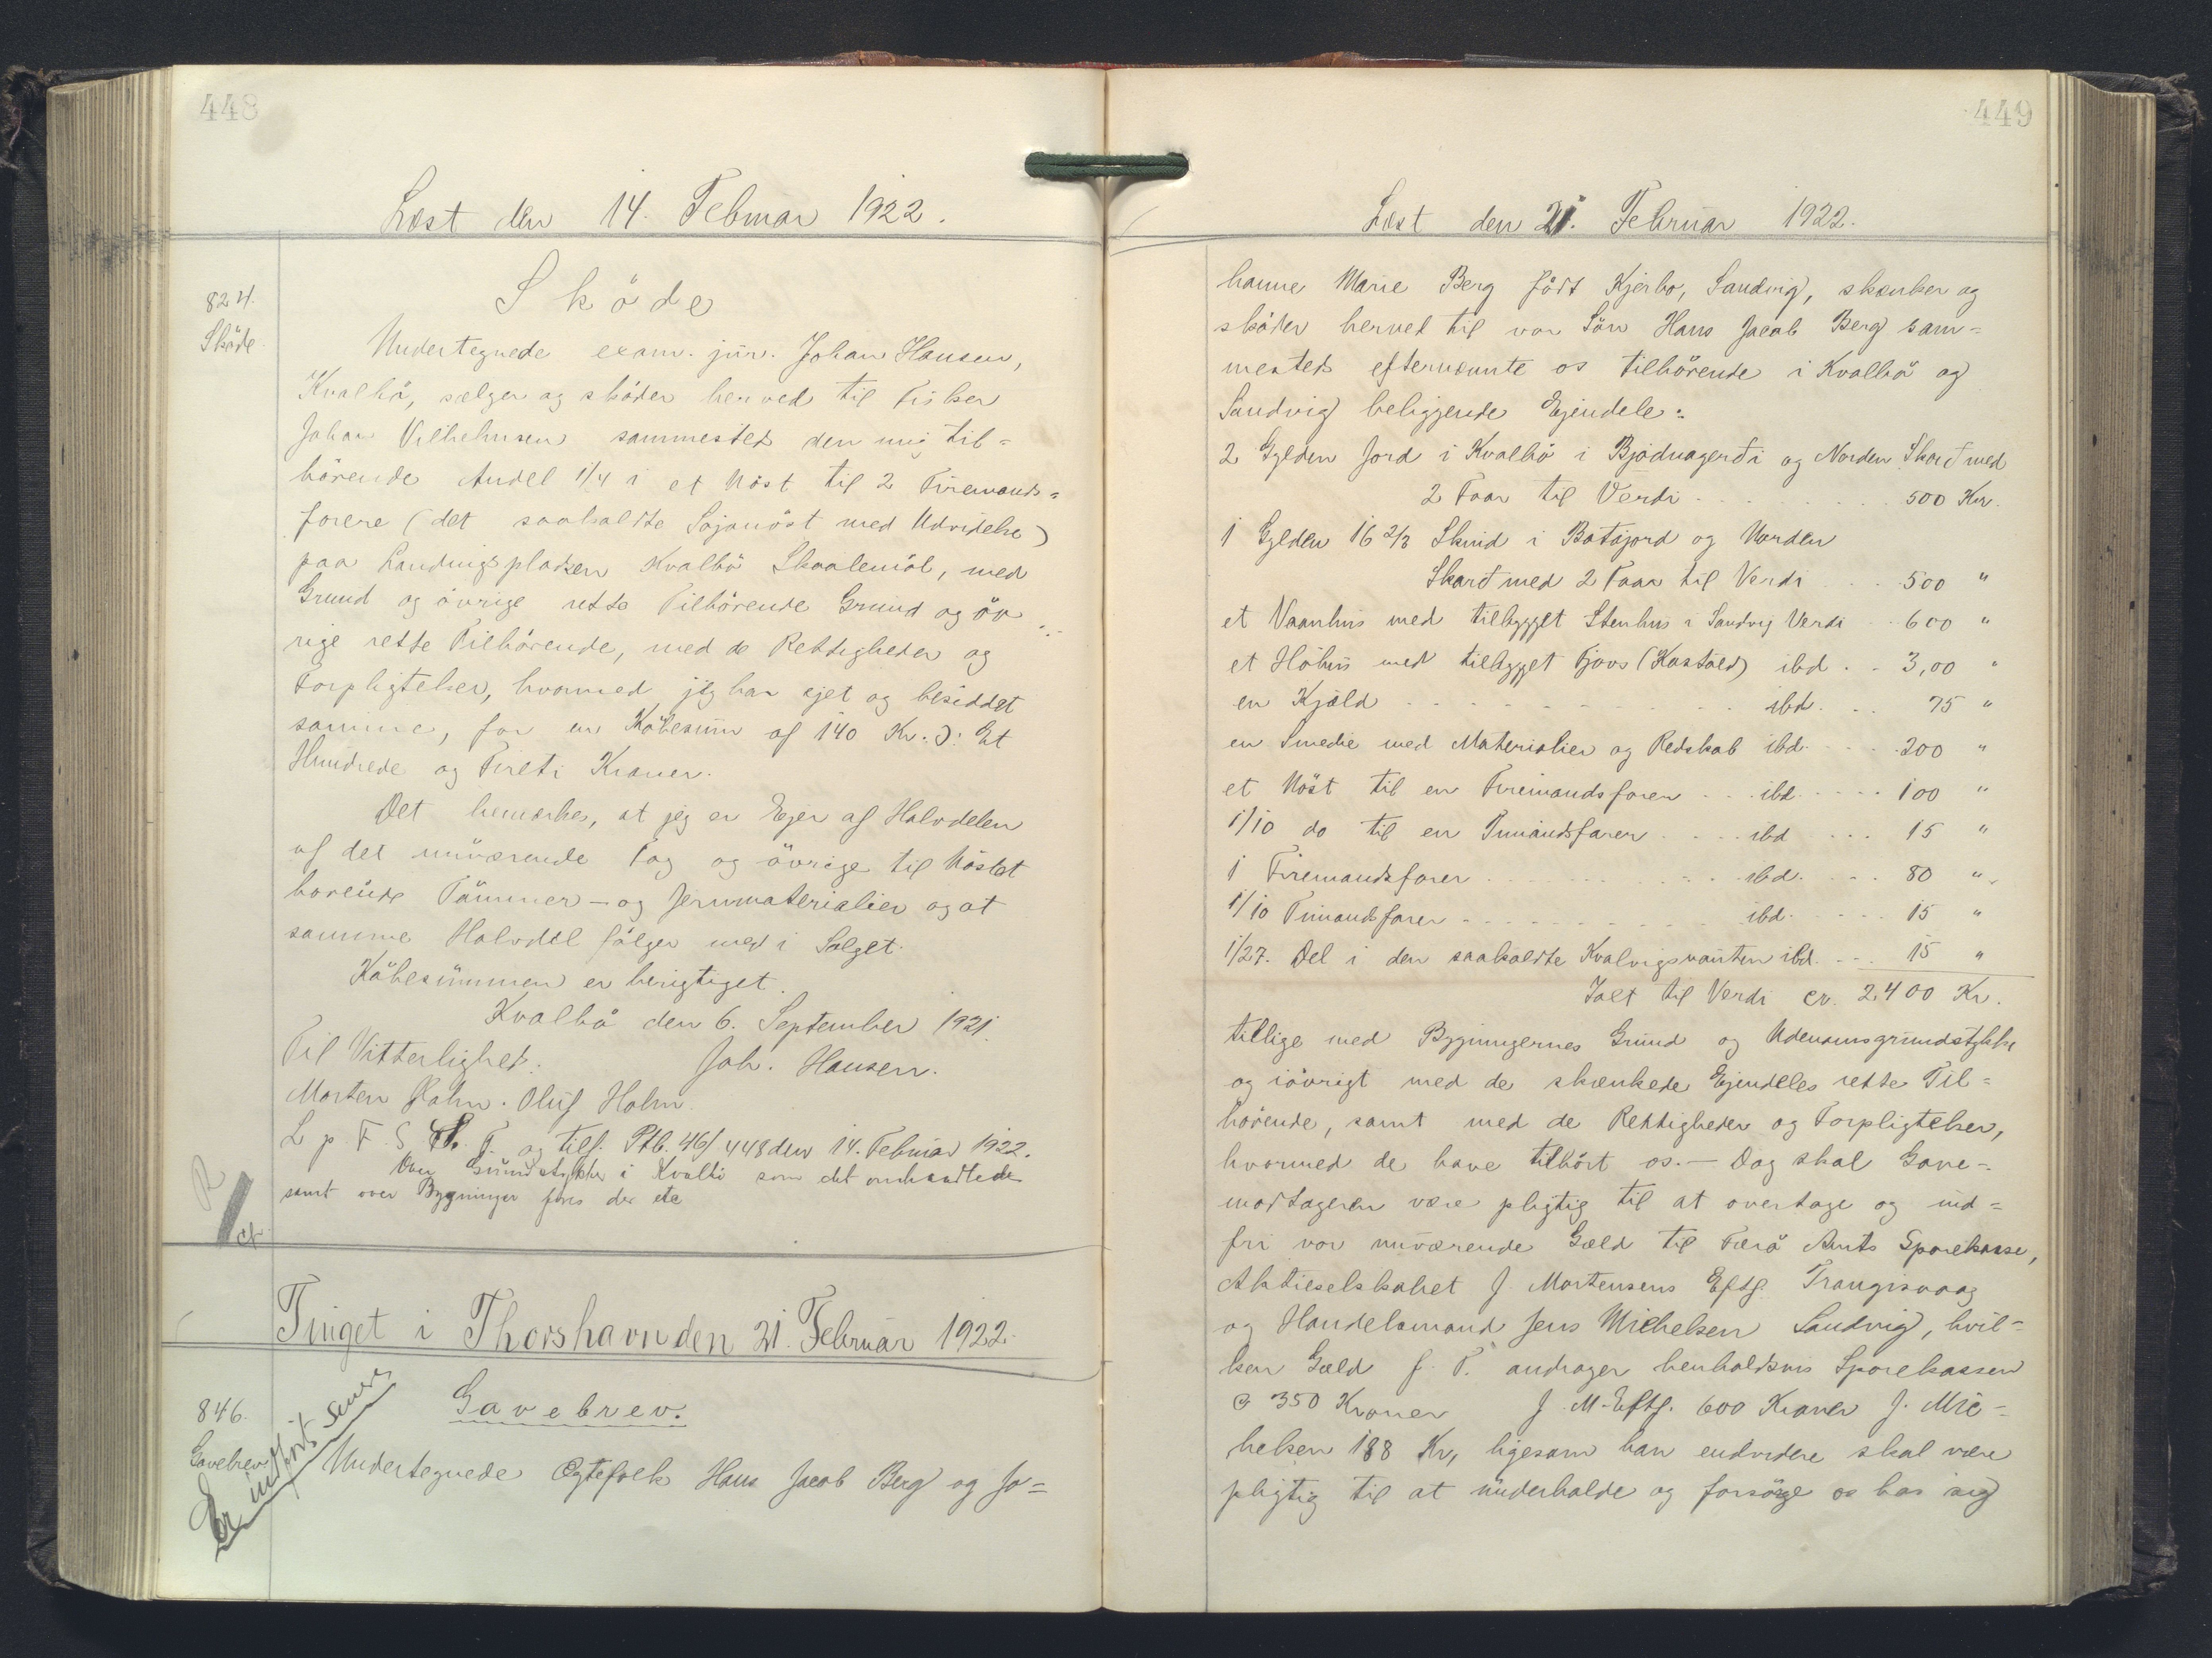 448
Læst den 14. Februar 1922.
824.
Sköde
Sköde
Undertegnede exam. jur. Johan Hansen,
Kvalbö, sælger og sköder herved til Fisker
Johan Vilhelmsen sammesteds den mig til=
hörende Andel 1/4 i et Nöst til 2 Firemands=
farere (det saakaldte Sojanöst med Udvidelse)
paa Landingspladsen Kvalbö Skaalemöl, med
Grund og övrige rette Tilhörende Grund og öv
rige rette Tilhörende, med de Rettigheder og
Forpligtelser, hvormed jeg har ejet og besiddet
samme, for en Köbesum af 140 Kr. ɔ: Et
Hundrede og Fireti Kroner.
Det bemærkes, at jeg er Ejer af Halvdelen
af det nuværende Tag og övrige til Nöstet
hörende Tömmer- og Jernmaterialier og at
samme Halvdel fölger med i Salget.
Köbesummen er berigtiget.
Kvalbö den 6. September 1921.
Til Vitterlighed: Joh. Hansen.
Morten Holm. Oluf Holm.
L p. F. S T. og tilf. Ptb. 46/448 den 14. Februar 1922.
Over Grundstykker i Kvalbö som det omhandlede
samt over Bygninger föres der ikke
R
Tinget i Thorshavn den 21. Februar 1922.
846.
Gavebrev
Er indfört senere
Gavebrev.
Undertegnede Ægtefolk Hans Jacob Berg og Jo=
449
Læst den 21. Februar 1922.
hanne Marie Berg födt Kjerbo, Sandvig, skænker og
sköder herved til vor Sön Hans Jacob Berg sam=
mesteds efternævnte os tilhörende i Kvalbö og
Sandvig beliggende Ejendele:
2 Gylden Jord i Kvalbö i Bjadnagerdi og Norden Skard med
2 Faar til Værdi 500 Kr.
1 Gylden 16 2/3 Skind i Batajord og Norden
Skard med 2 Faar til Værdi 500 "
et Vaanhus med tilbygget Stenhus i Sandvig Værdi 600 "
et Höhus med tilbygget Fjøs (Kostald) ibd. 3,00 "
en Kjald ibd. 75 "
en Smedie med Materialier og Redskab ibd. 200 "
et Nöst til en Firemandsfarer ibd. 100 "
1/10 do til en Timandsfarer ibd 15 "
1 Firemandsfarer ibd. 80 "
1/10 Timandsfarer ibd. 15 "
1/27. Del i den saakaldte Kvalvigsvaúten ibd. 15 "
Ialt til Værdi cr. 2.400 Kr.
tillige med Bygningernes Grund og Udenomsgrundstykke
og iövrigt med de skænkede Ejendeles rette Til=
hörende, samt med de Rettigheder og Forpligtelser,
hvormed de have tilhört os. - Dog skal Gave=
modtageren være pligtig til at overtage og ind=
fri vor nuværende Gæld til Færö Amts Sparekasse,
Aktieselskabet J Mortensens Eftf. Trangisvaag
og Handelsmand Jens Michelsen Sandvig, hvil=
ken Gæld f. T. andrager henholdsvis Sparekassen
350 Kroner J. M. Eftf. 600 Kroner J. Mic=
helsen 188 Kr, ligesom han endvidere skal være
pligtig til at underholde og forsörge os hos sig